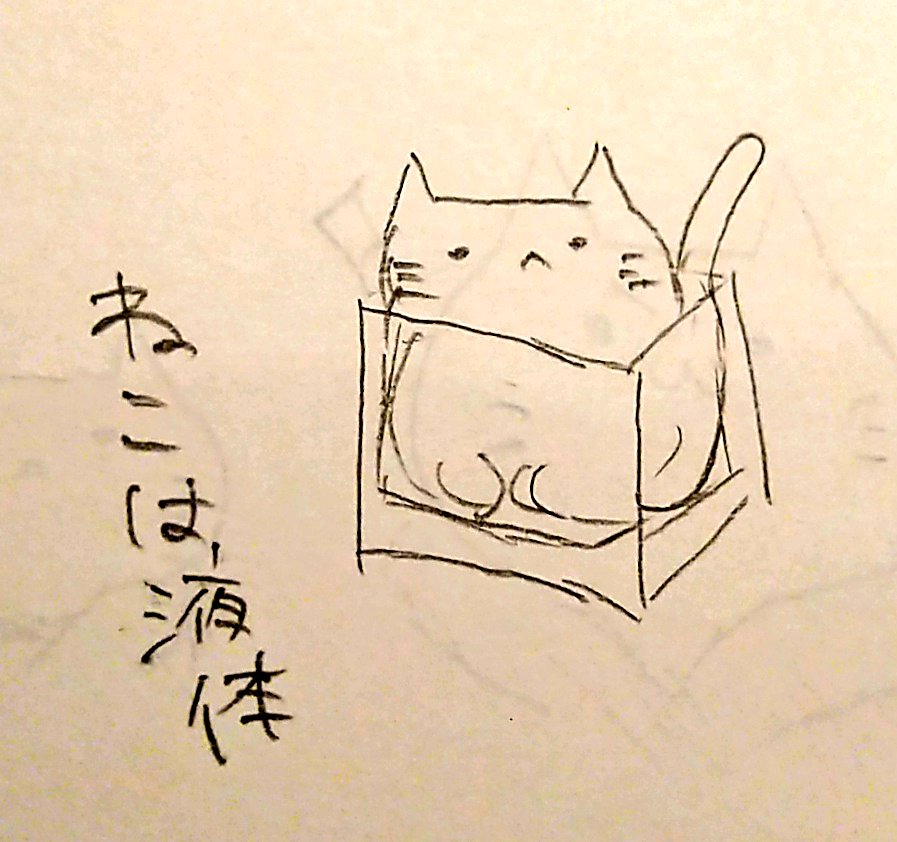 ねこは液体